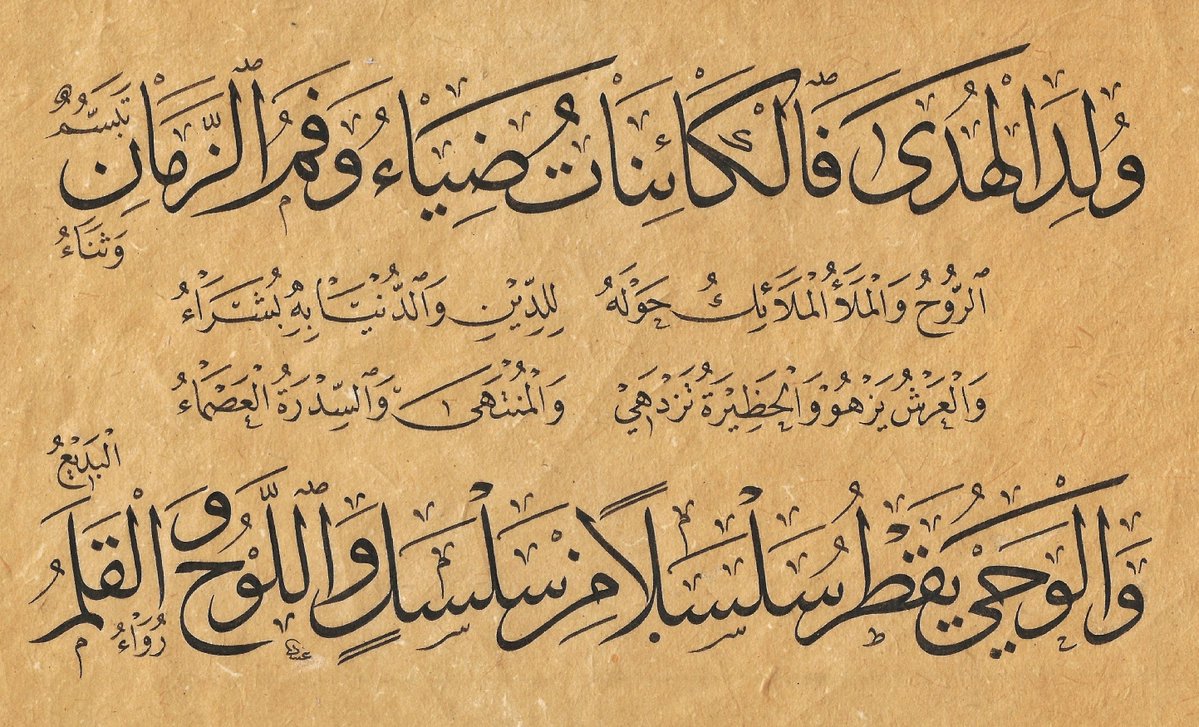 وُلِدَ الْهُدَى فَالْكَائِنَاتُ ضِيَاءُ وَفَمُ الزَّمَانِ تَبَسُّمٌ وَثَنَاءُ
الرُّوحُ وَالْمَلَأُ الْمَلَائِكُ حَوْلَهُ لِلدِّينِ وَالدُّنْيَا بِهِ بُشَرَاءُ
وَالْعَرْشُ يَزْهُو وَالْحَظِيرَةُ تَزْدَهِي وَالْمُنْتَهَى وَالسِّدْرَةُ الْعَصْمَاءُ
وَالْوَحْيُ يَقْطُرُ سَلْسَلًا مِنْ سَلْسَلٍ وَاللَّوْحُ وَالْقَلَمُ الْبَدِيعُ رُوَاءُ